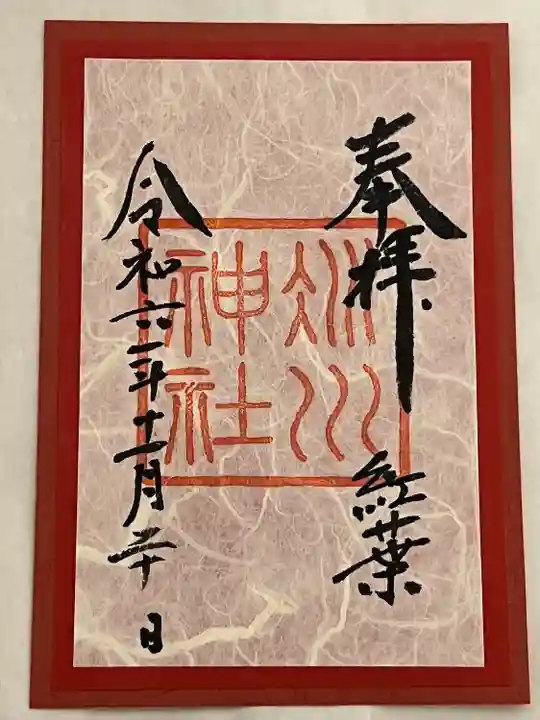 奉拝
紅葉
川
神社
令和六年十一月二十日